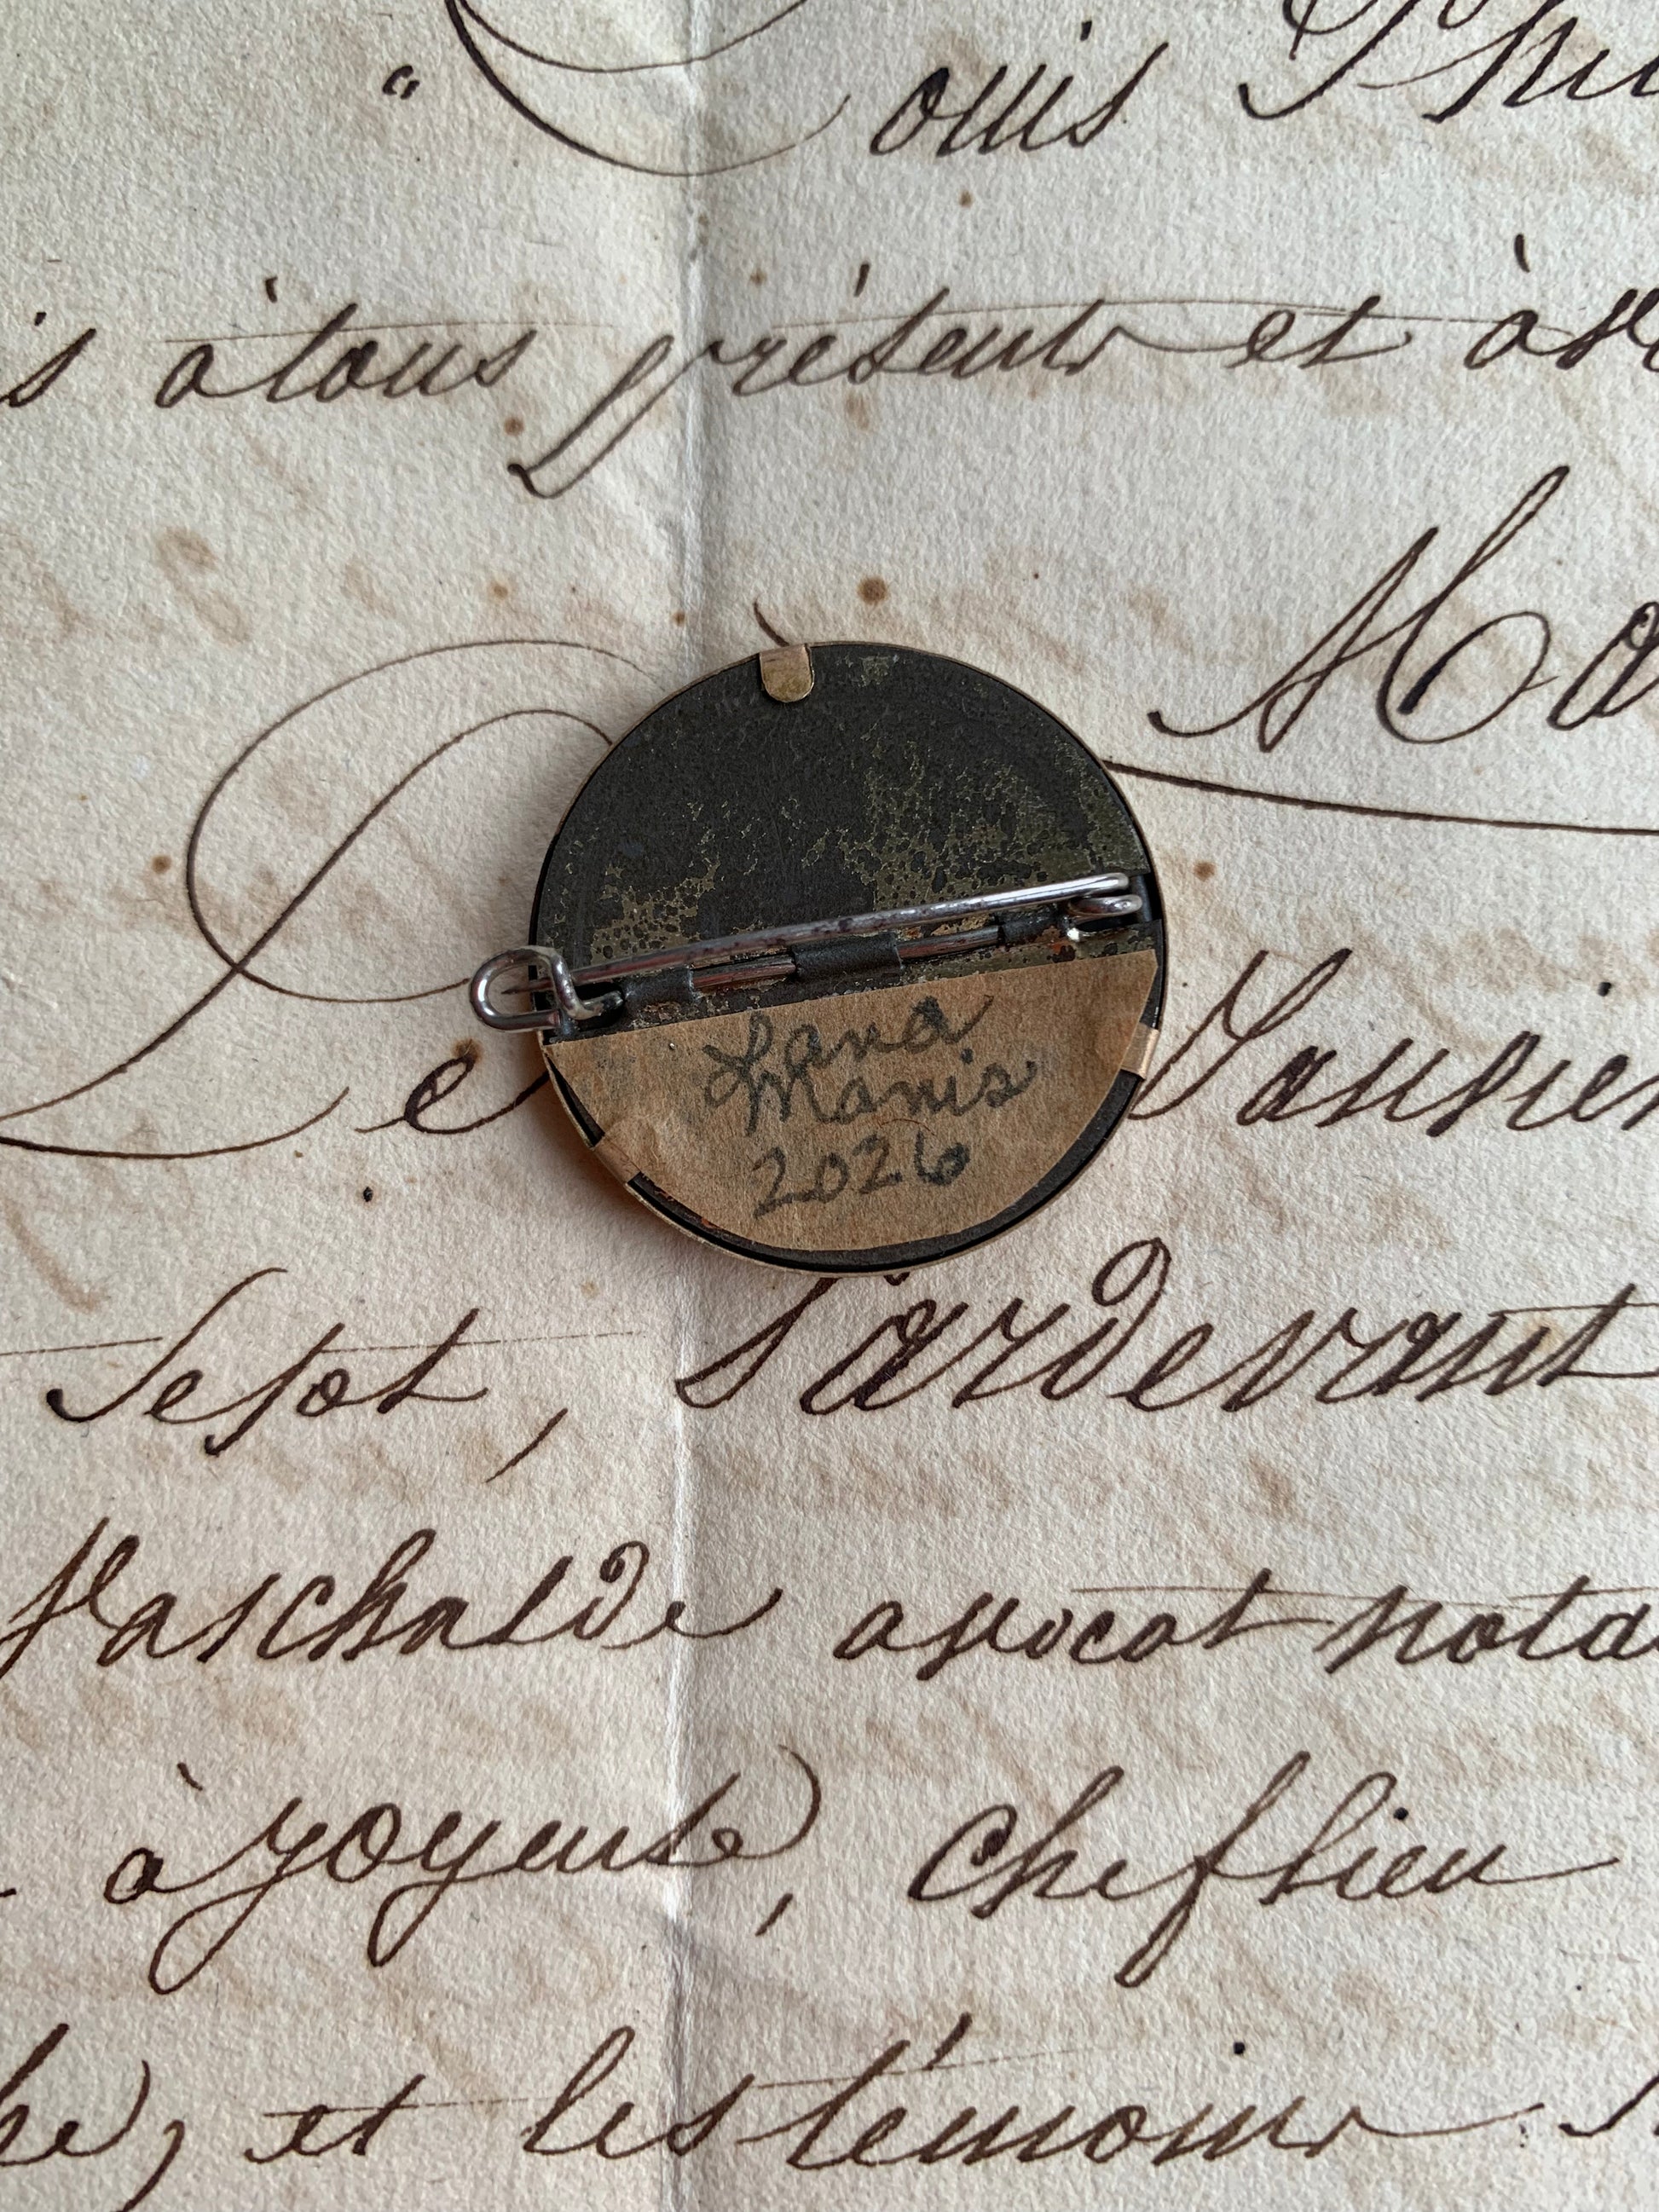 " Louis Phil
is à tous présents et à ve
Ho
De
Janvier
Lana
Manis
2026
Sept, pardevant
Paschalde avocat nota
à joyeuse, chef lieu
he, et les témoins s